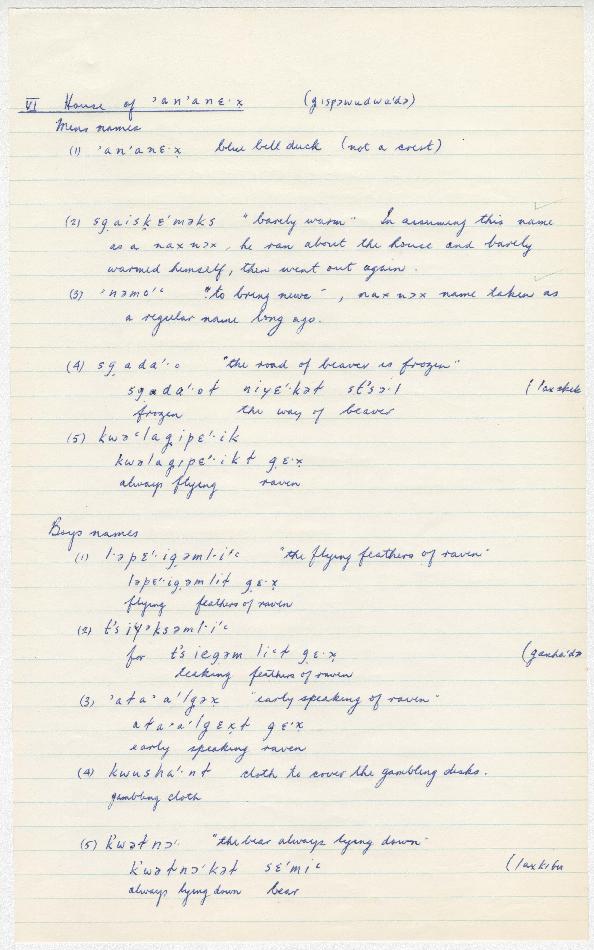 VI House of ʾanʾanɛ·x̣ (gɪspəwudwaʹdə)
Mens names
(1) ʾanʾanɛ·x̣ blue bell duck (not a crest)
(2) sg̣aisḳɛʹməks "barely warm" In assuming this name
as a naxnɔx, he ran about the house and barely
warmed himself, then went out again.
(3) ʾnəmoʹᶜ "to bring news", naxnɔx name taken as
a regular name long ago.
(4) sg̣adaʹ·o "the road of beaver is frozen"
sg̣adaʹ·oł niyɛʹ·kət st'sɔ·l (laxskik
frozen the way of beaver
(5) kwəᶜlag̣ipɛʹ·ik
kwəlag̣ipɛʹ·ikł g̣ɛ·x̣
always flying raven
Boys names
(1) l·əpɛʹ·ig̣əml·iʹᶜ "the flying feathers of raven"
ləpɛ·ig̣əmlił g̣ɛ·x̣
flying feathers of raven
(2) t'siyəksəml·iᶜ
for t'siɛg̣əm liᶜł g̣ɛ·x̣ (ganhaʹdə
leaking feathers of raven
(3) ʾataʾaʹlg̣əx "early speaking of raven"
ataʾaʹlg̣ɛx̣ł g̣ɛʹx̣
early speaking raven
(4) kwushaʹ·nt cloth to cover the gambling disks.
gambling cloth
(5) k'wəłnɔ· "the bear always lying down"
k'wəłnɔʹkəł sɛʹmiᶜ (laxkibu
always lying down bear